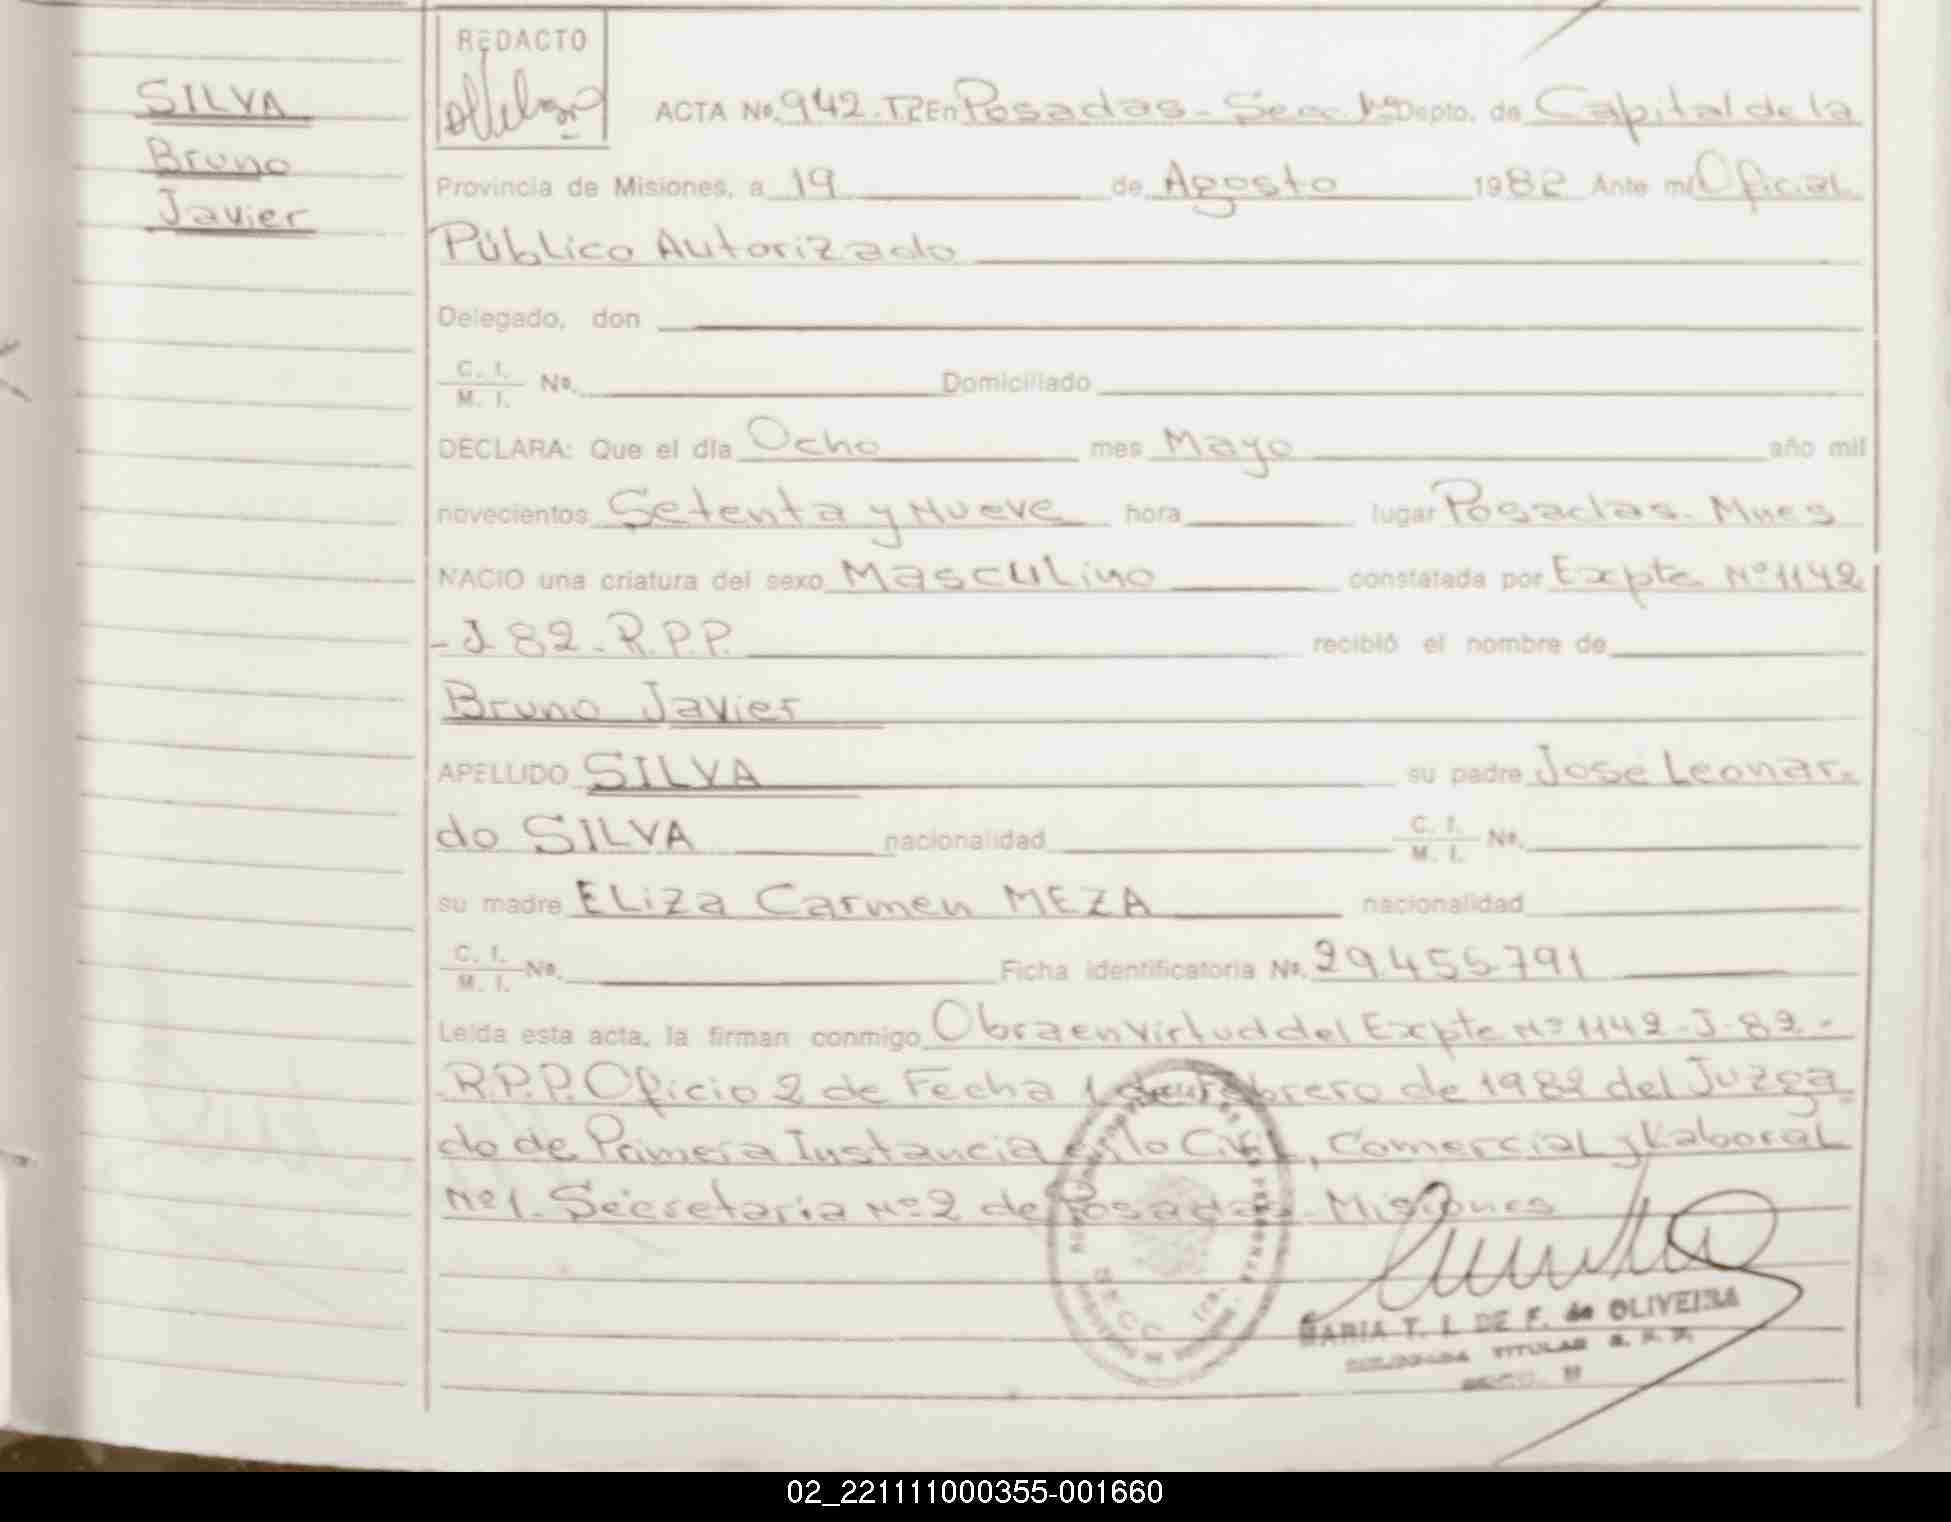 SILVA
Bruno
Javier
REDACTO
ACTA No. 942. T2 En Posadas - Secc 1ª Depto. de Capital de la
Provincia de Misiones, a 19 de Agosto 1982 Ante mí Oficial
Público Autorizado
Delegado, don
C. I. / M. I. No. Domiciliado
DECLARA: Que el día Ocho mes Mayo año mil
novecientos Setenta y Nueve hora lugar Posadas. Mnes
NACIO una criatura del sexo Masculino constatada por Expte Nº 1142
- J 82. R.P.P. recibió el nombre de
Bruno Javier
APELLIDO SILVA su padre José Leonar-
do SILVA nacionalidad C. I. / M. I. No.
su madre ELiza Carmen MEZA nacionalidad
C. I. / M. I. No. Ficha identificatoria No. 29.455.791
Leída esta acta, la firman conmigo Obra en virtud del Expte Nº 1142-J-82-
R.P.P. Oficio 2 de Fecha 1 de Febrero de 1982 del Juzga-
do de Primera Instancia en lo Civil, Comercial y Laboral
Nº 1. Secretaría Nº 2 de Posadas - Misiones
SECC. 1ra.
MARIA T. I. DE F. de OLIVEIRA
TITULAR
02_221111000355-001660